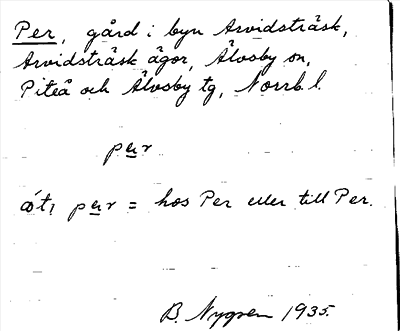 Per, gård i byn Arvidsträsk,
Arvidsträsk ägor, Älvsby sn,
Piteå och Älvsby tg, Norrb. l.
per
åt, per = hos Per eller till Per.
B. Nygren 1935.